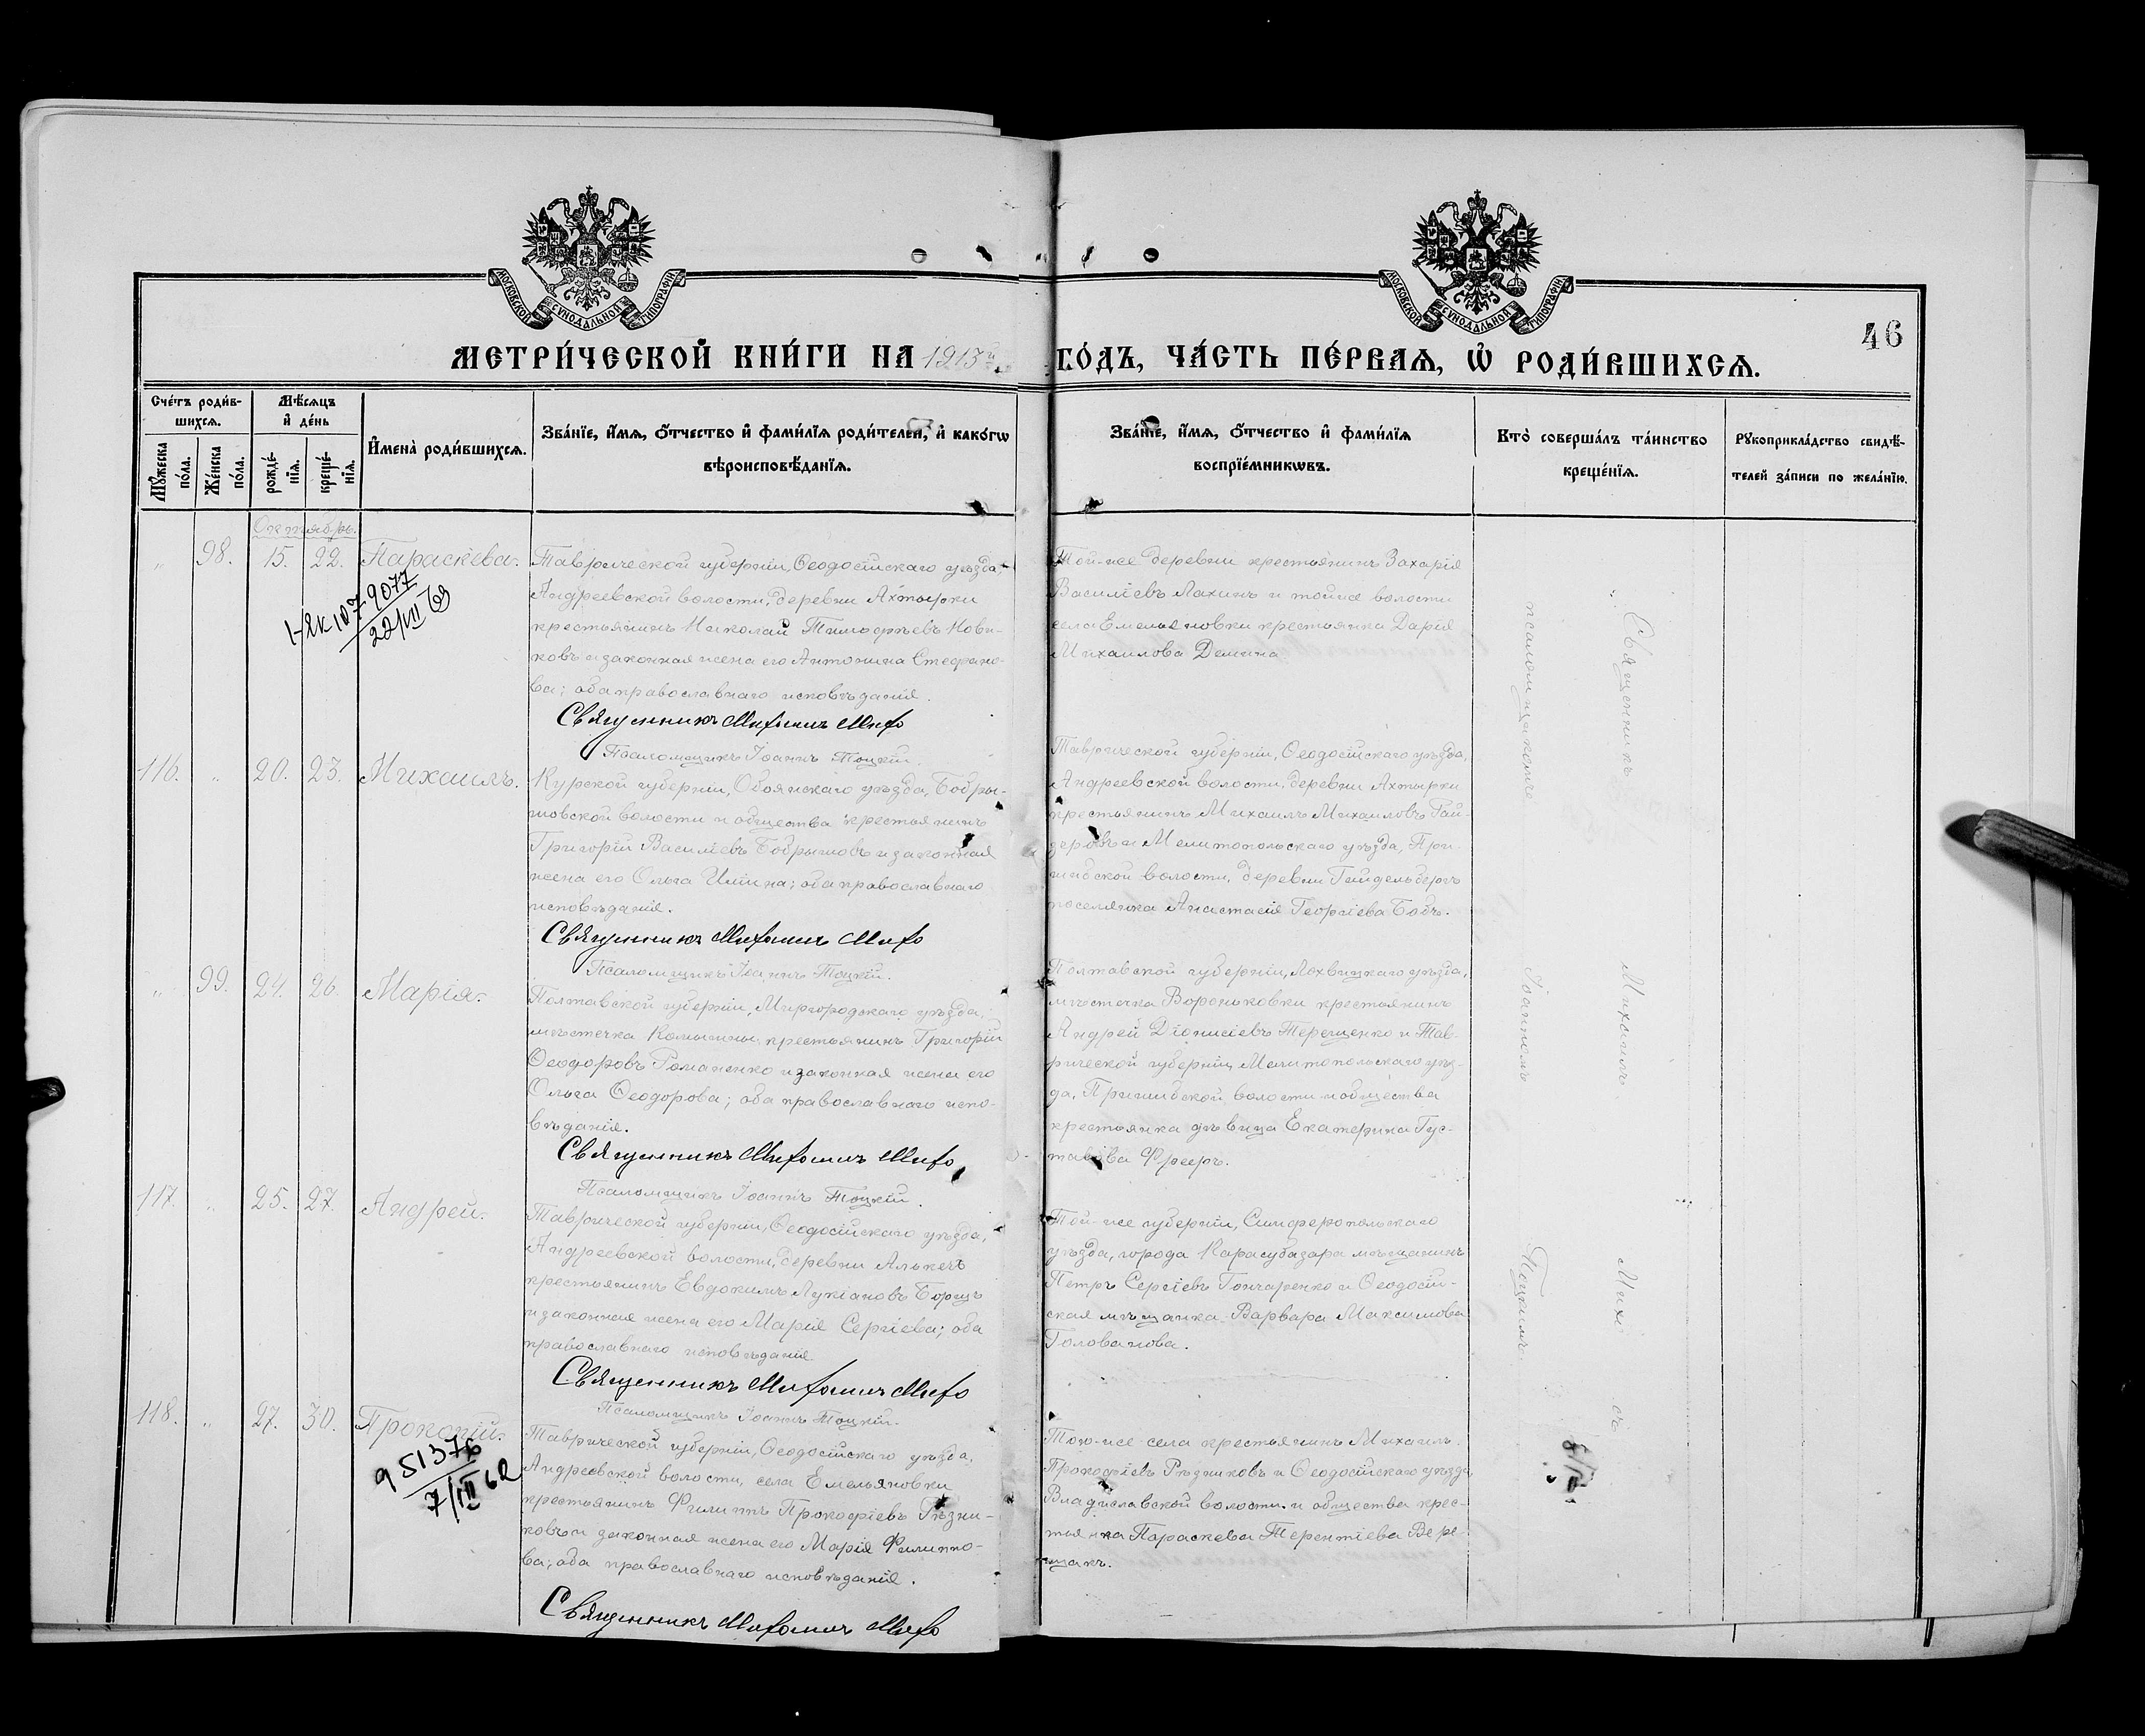 МОСКОВСКОЙ СѴНОДАЛЬНОЙ ТИПОГРАФІИ
МОСКОВСКОЙ СѴНОДАЛЬНОЙ ТИПОГРАФІИ
46
МЕТРИ́ЧЕСКОЙ КНИ́ГИ НА 1913й ГО́ДЪ, ЧА́СТЬ ПЕ́РВАѦ, Ѡ҆ РОДИ́ВШИХСѦ.
Сче́тъ роди́в-
шихсѧ.
Мѣ́сѧцъ
и҆ де́нь
Мꙋ́жеска
по́ла.
Же́нска
по́ла.
рожде́-
нїѧ.
креще́-
нїѧ.
И҆мена̀ роди́вшихсѧ.
Зва́нїе, и҆́мѧ, ѻ҆́тчество и҆ фами́лїѧ роди́телей, и҆ како́гѡ
вѣроисповѣ́данїѧ.
Зва́нїе, и҆́мѧ, ѻ҆́тчество и҆ фами́лїѧ
воспрїе́мникѡвъ.
Кто̀ соверша́лъ та́инство
креще́нїѧ.
Рꙋкоприкла́дство свидѣ́-
телей за́писи по жела́нїю.
Октябрь.
„ 98. 15. 22. Параскева.
9077
22/VII 69
Таврической губерніи, Ѳеодосійскаго уѣзда,
Андреевской волости, деревни Ахтырки
крестьянинъ Николай Тимоѳеевъ Нови-
ковъ и законная жена его Антонина Стефано-
ва; оба православнаго исповѣданія.
Священникъ Михаилъ Михо
Псаломщикъ Іоаннъ Тоцкій.
Той-же деревни крестьянинъ Захарія
Василіевъ Лахинъ и тойже волости
села Емельяновки крестьянка Дарія
Михаилова Демина
116. „ 20. 23. Михаилъ.
Курской губерніи, Обоянскаго уѣзда, Бобры-
шовской волости и общества крестьянинъ
Григорій Василіевъ Бобрышовъ и законная
жена его Ольга Иліина; оба православнаго
исповѣданія.
Священникъ Михаилъ Михо
Псаломщикъ Іоаннъ Тоцкій.
Таврической губерніи, Ѳеодосійскаго уѣзда,
Андреевской волости, деревни Ахтырки
крестьянинъ Михаилъ Михаиловъ Гай-
деровъ и Мелитопольскаго уѣзда, При-
шибской волости, деревни Гейдельбергъ
поселянка Анастасія Георгіева Бобъ.
„ 99. 24. 26. Марія.
Полтавской губерніи, Миргородскаго уѣзда,
мѣстечка Комышны крестьянинъ Григорій
Ѳеодоровъ Романенко и законная жена его
Ольга Ѳеодорова; оба православнаго испо-
вѣданія.
Священникъ Михаилъ Михо
Псаломщикъ Іоаннъ Тоцкій.
Полтавской губерніи, Лохвицкаго уѣзда,
мѣстечка Вороньковки крестьянинъ
Андрей Діонисіевъ Терещенко и Тав-
рической губерніи, Мелитопольскаго уѣз-
да, Пришибской волости и общества
крестьянка дѣвица Екатерина Гус-
тавова Фрееръ.
117. „ 25. 27. Андрей.
Таврической губерніи, Ѳеодосійскаго уѣзда,
Андреевской волости, деревни Алькечь
крестьянинъ Евдокимъ Лукіановъ Борщъ
и законная жена его Марія Сергіева; оба
православнаго исповѣданія
Священникъ Михаилъ Михо
Псаломщикъ Іоаннъ Тоцкій.
Той-же губерніи, Симферопольскаго
уѣзда, города Карасубазара мѣщанинъ
Петръ Сергіевъ Гончаренко и Ѳеодосій-
ская мѣщанка Варвара Максимова
Голованова.
118. „ 27. 30. Прокопій.
951376
7/III 62
Таврической губерніи, Ѳеодосійскаго уѣзда,
Андреевской волости, села Емельяновки
крестьянинъ Филиппъ Прокофіевъ Рѣзни-
ковъ и законная жена его Марія Филиппо-
ва; оба православнаго исповѣданія.
Священникъ Михаилъ Михо
Того-же села крестьянинъ Михаилъ
Прокофіевъ Рѣзниковъ и Ѳеодосійскаго уѣзда
Владиславской волости и общества крес-
тьянка Параскева Терентіева Вере-
щакъ.
Священникъ Михаилъ Михо съ
псаломщикомъ Іоанномъ Тоцкимъ.